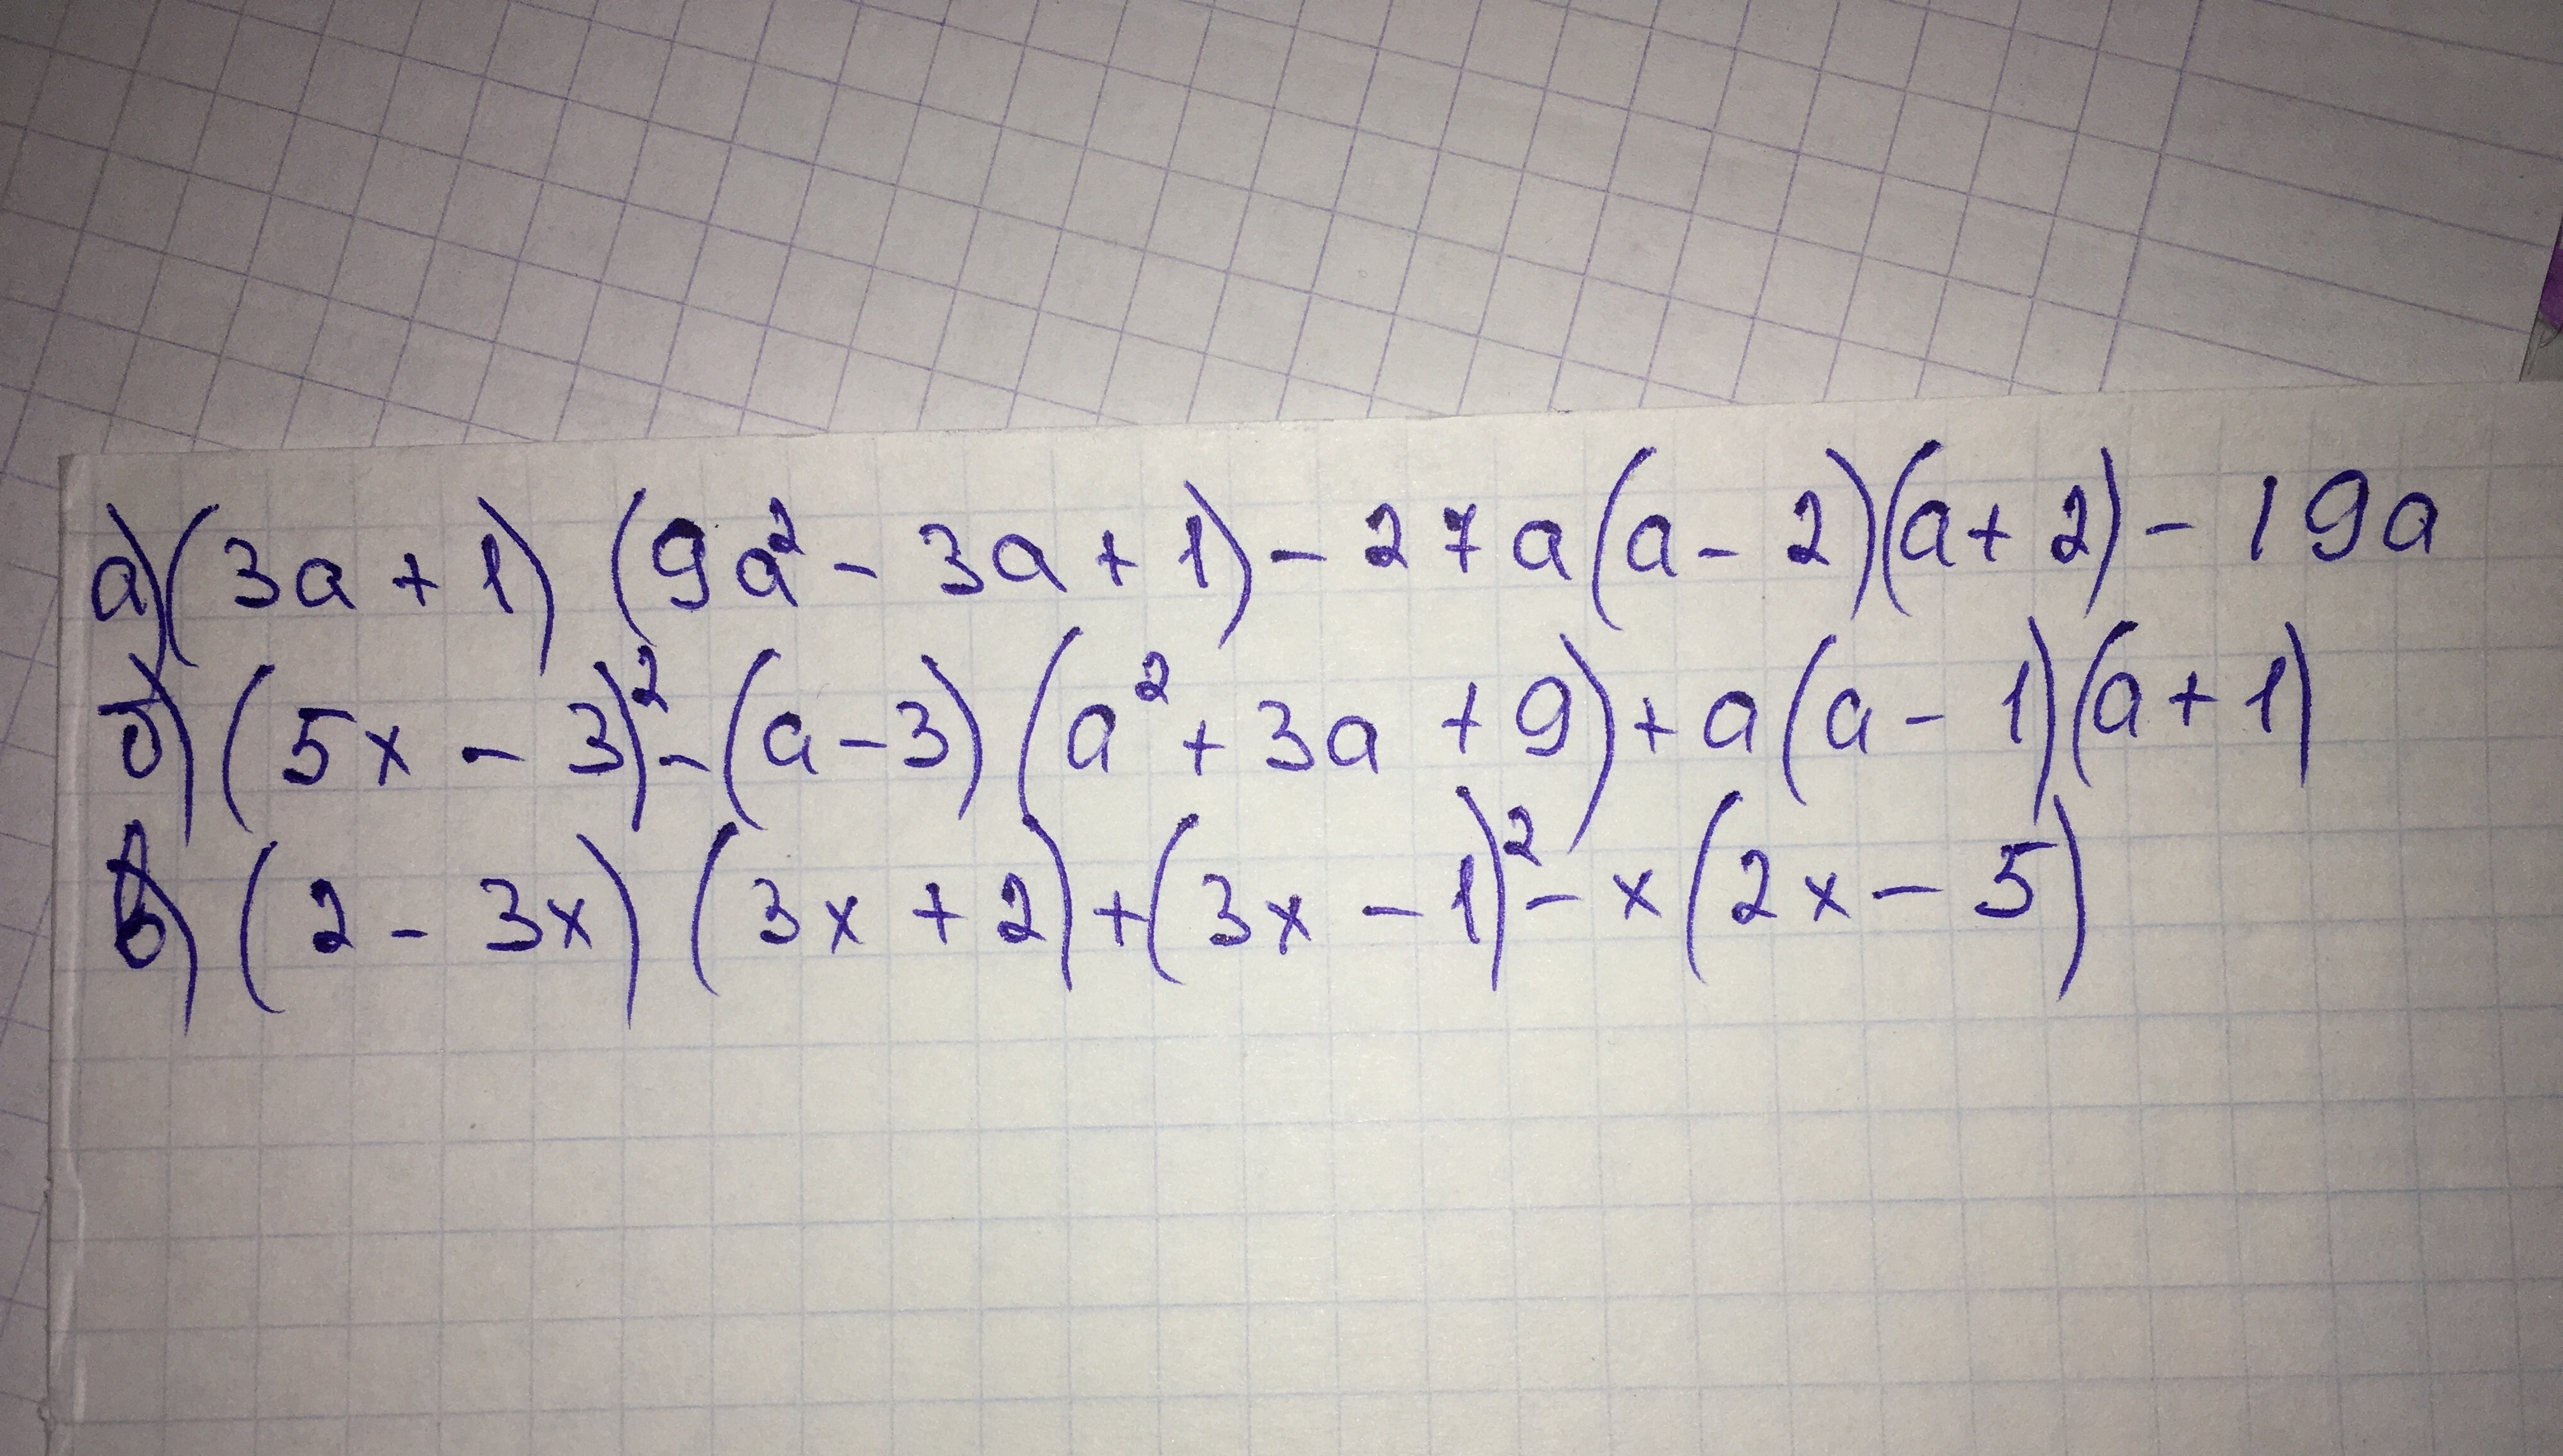 а) (3a + 1) (9a² - 3a + 1) - 27a(a - 2)(a + 2) - 19a
б) (5x - 3)² - (a - 3) (a² + 3a + 9) + a(a - 1)(a + 1)
в) (2 - 3x) (3x + 2) + (3x - 1)² - x(2x - 5)